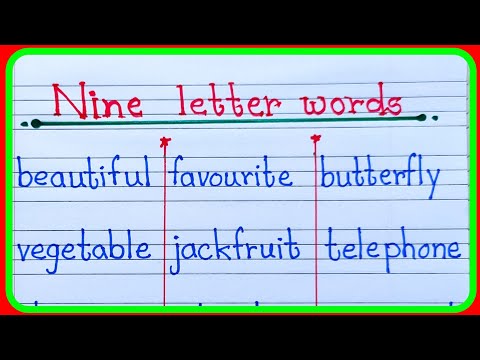 Nine letter words
beautiful favourite butterfly
vegetable jackfruit telephone